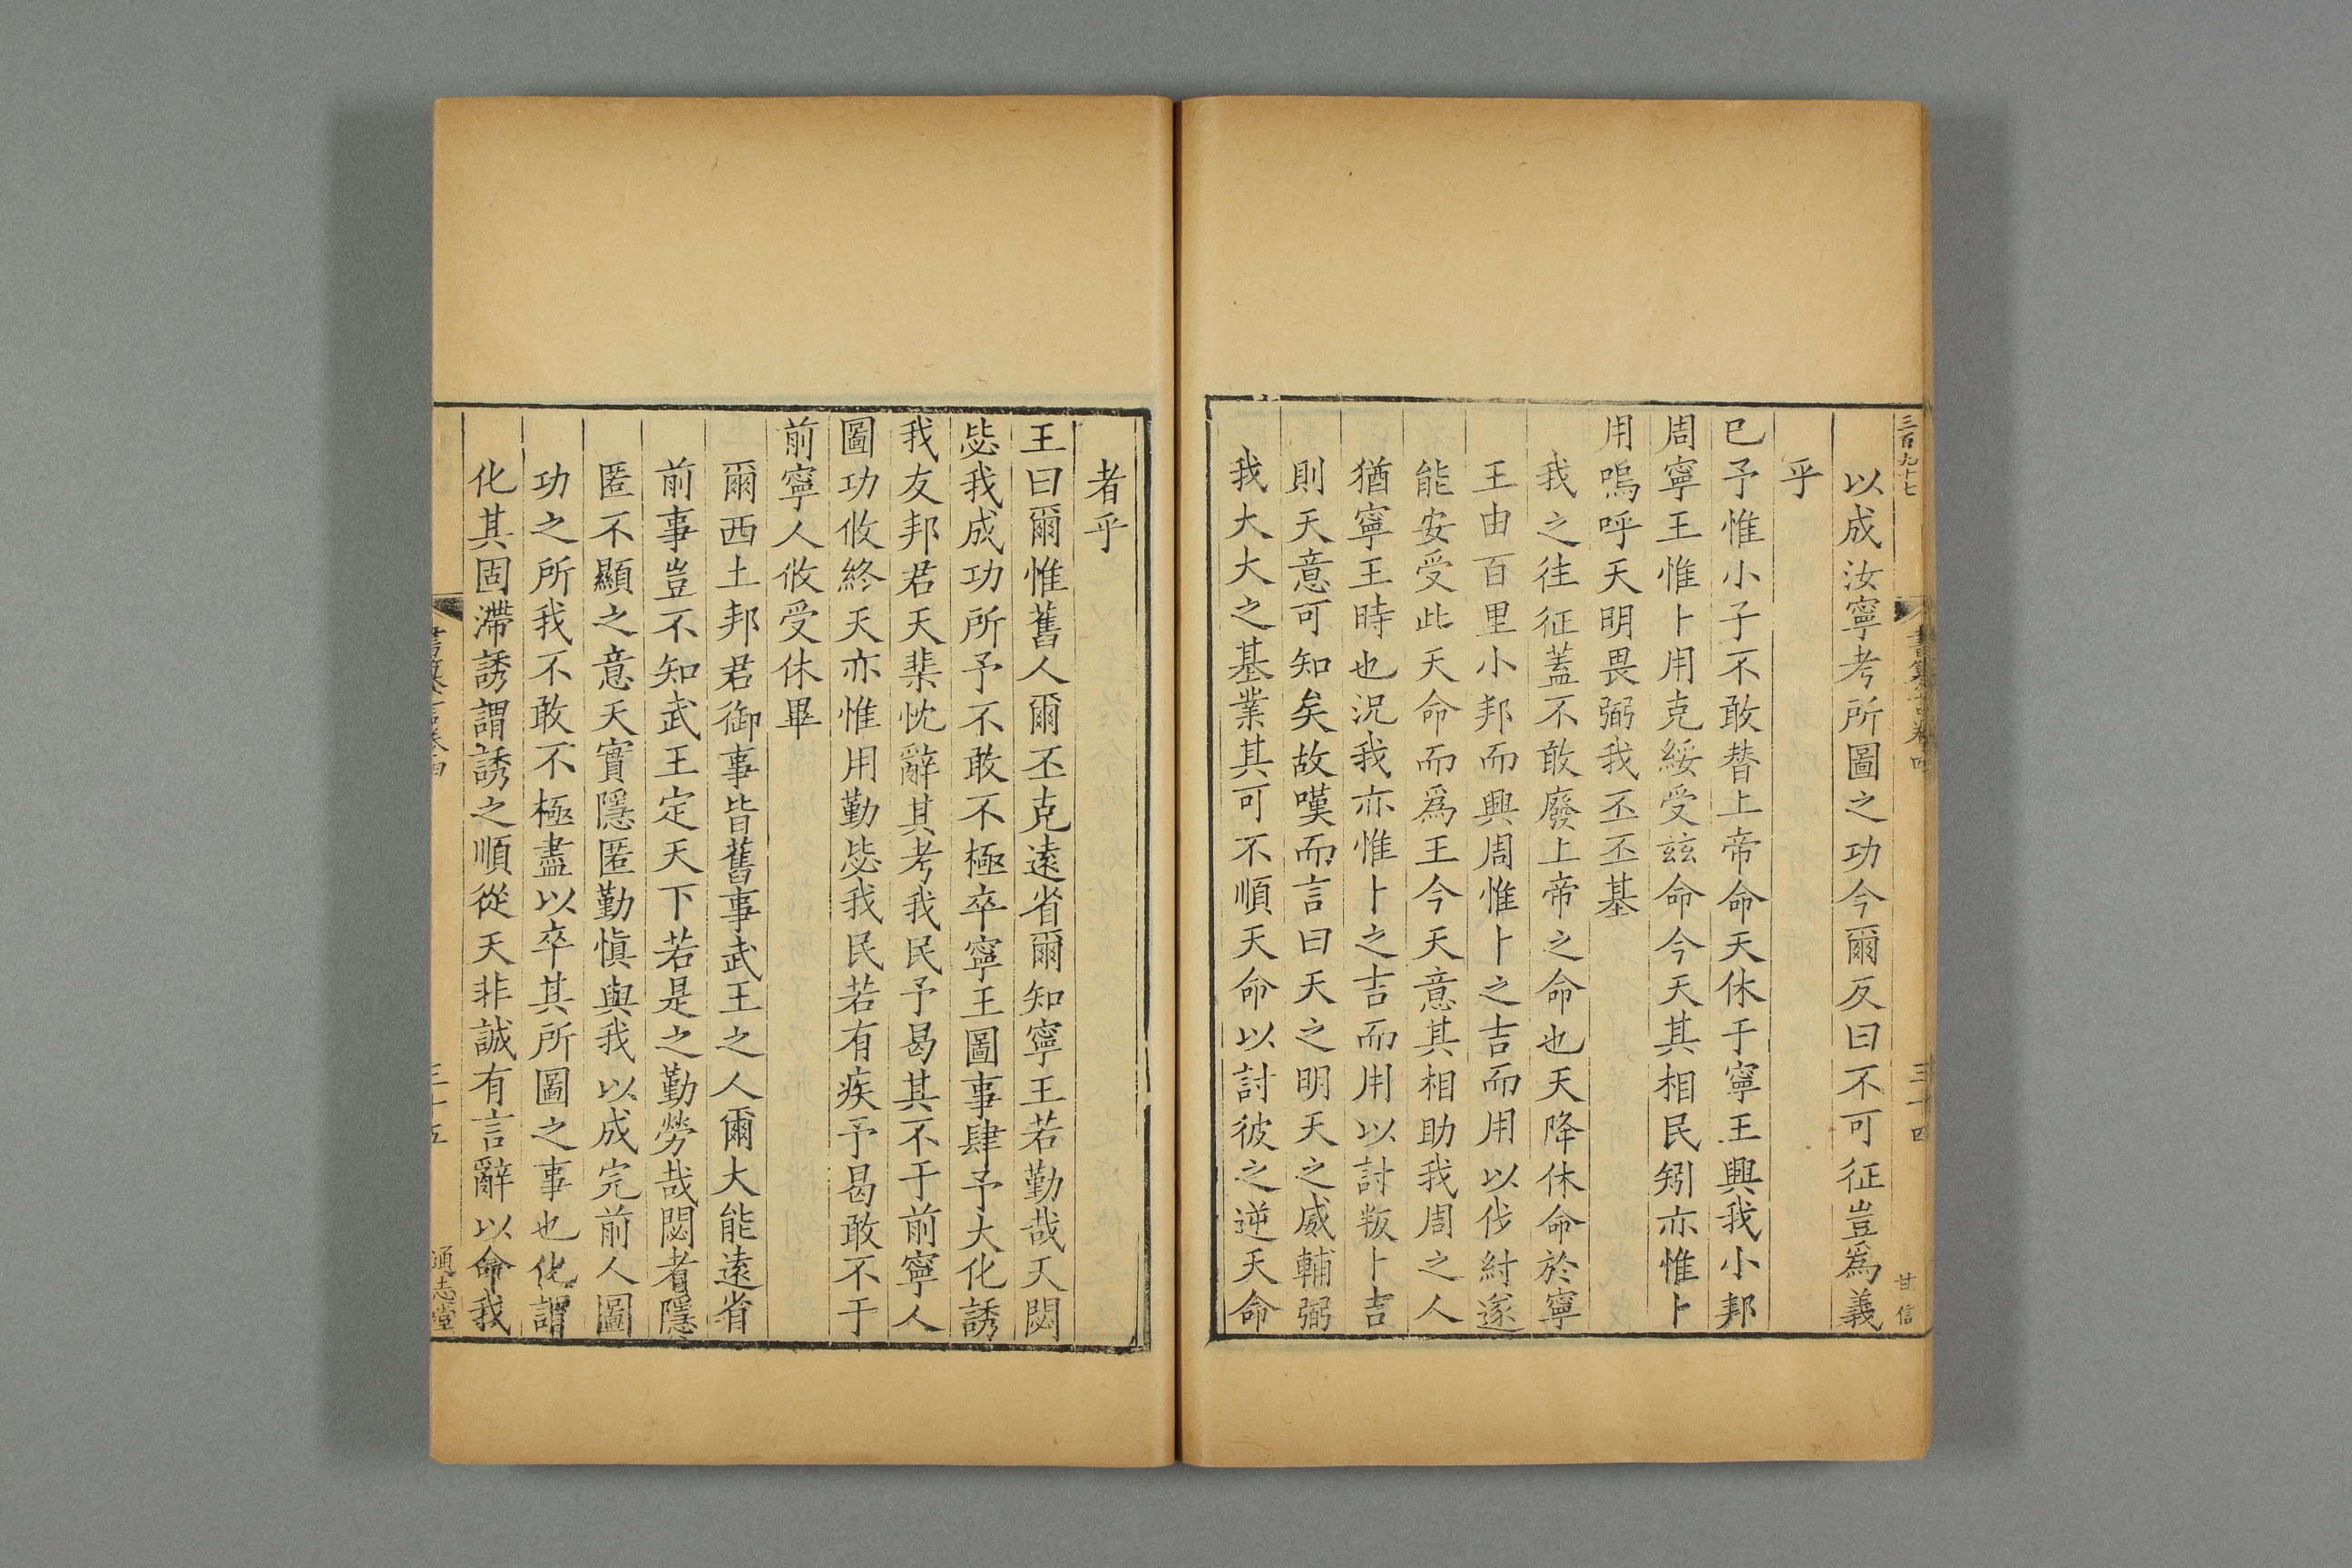 三百九十七
書纂言卷四
三十四
甘信
以成汝寧考所圖之功今爾反曰不可征豈爲義
乎
已予惟小子不敢替上帝命天休于寧王興我小邦
周寧王惟卜用克綏受茲命今天其相民矧亦惟卜
用嗚呼天明畏弼我丕丕基
我之往征蓋不敢廢上帝之命也天降休命於寧
王由百里小邦而興周惟卜之吉而用以伐紂遂
能安受此天命而爲王今天意其相助我周之人
猶寧王時也況我亦惟卜之吉而用以討叛卜吉
則天意可知矣故嘆而言曰天之明天之威輔弼
我大大之基業其可不順天命以討彼之逆天命
者乎
王曰爾惟舊人爾丕克遠省爾知寧王若勤哉天閟
毖我成功所予不敢不極卒寧王圖事肆予大化誘
我友邦君天棐忱辭其考我民予曷其不于前寧人
圖功攸終天亦惟用勤毖我民若有疾予曷敢不于
前寧人攸受休畢
爾西土邦君御事皆舊事武王之人爾大能遠省
前事豈不知武王定天下若是之勤勞哉閟者隱
匿不顯之意天實隱匿勤慎與我以成完前人圖
功之所我不敢不極盡以卒其所圖之事也化謂
化其固滯誘謂誘之順從天非誠有言辭以命我
書纂言卷四
三十五
通志堂